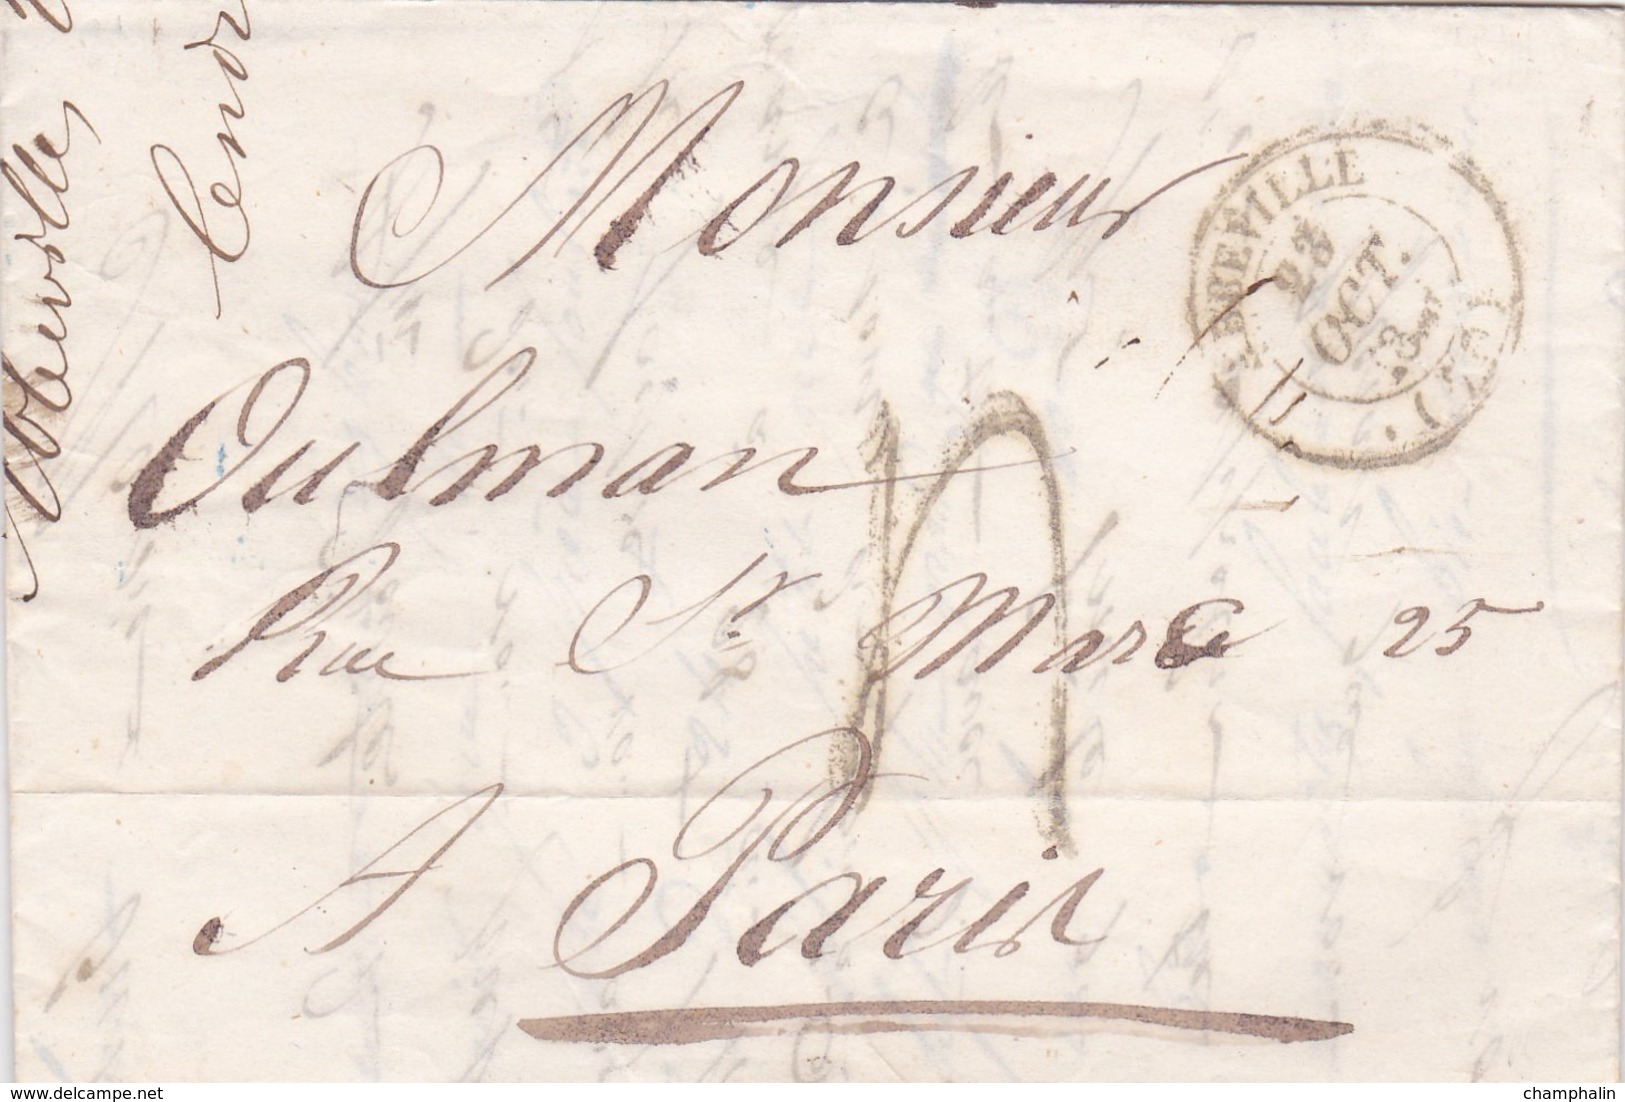 Monsieur
Oulman
Rue St Marc 25
A Paris
ABBEVILLE
23
OCT.
(76)
Abbeville
delcampe.net
champhalin